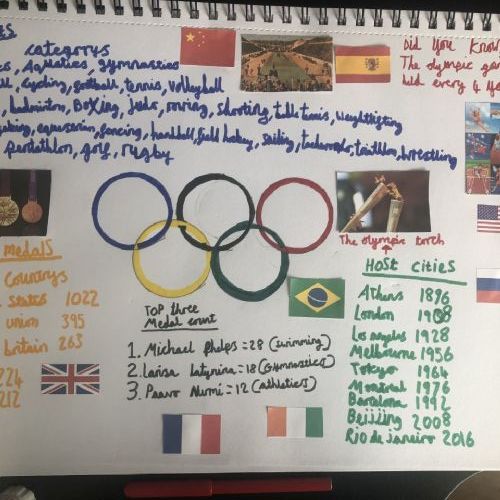 categorys
Did You Know
Aquatics, gymnastics
The olympic
cycling, football, tennis, Volleyball
held every 4
badminton, Boxing, Judo, rowing, shooting, table tennis, weightlifting
equestrian, fencing, handball, field hockey, sailing, taekwondo, triathlon, wrestling
pentathlon, golf, rugby
The olympic torch
Medals
Host cities
Countrys
states 1022
union 395
britain 263
212
Top three
Medal count
1. Michael Phelps = 28 (swimming)
2. Larisa Latynina = 18 (Gymnastics)
3. Paavo Nurmi = 12 (athletics)
Athens 1896
London 1908
Los angeles 1928
Melbourne 1956
Tokyo 1964
Montreal 1976
Barcelona 1992
Beijing 2008
Rio de janeiro 2016